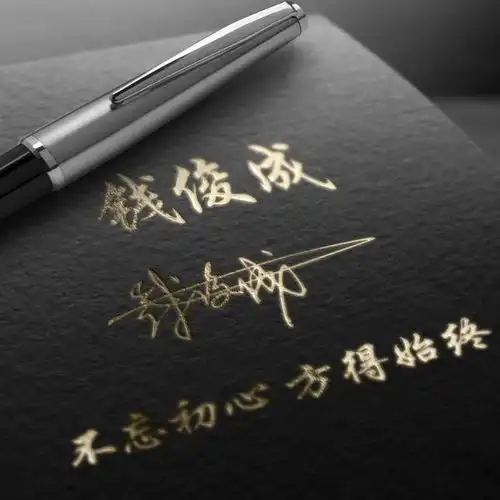 钱俊成
钱俊成
不忘初心 方得始终